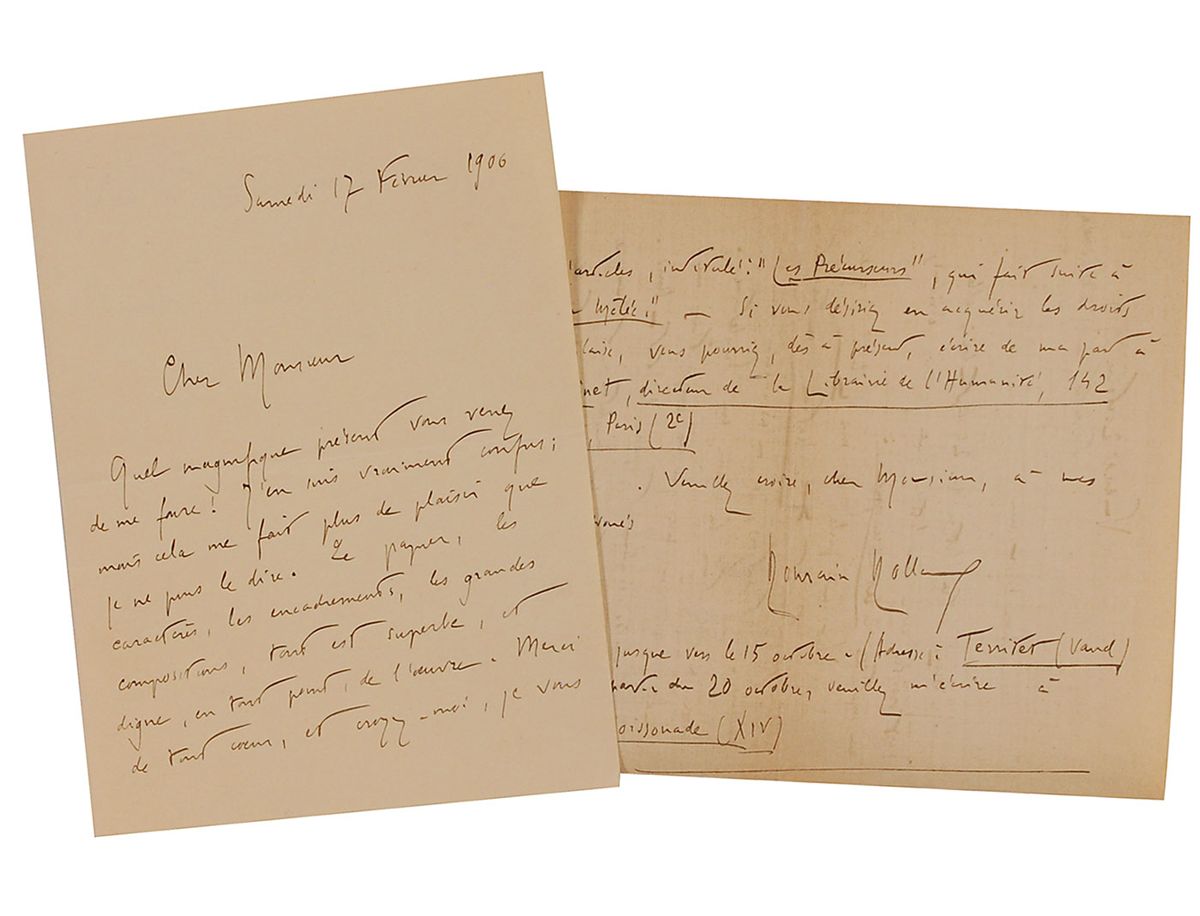 Samedi 17 Février 1906
Cher Monsieur
Quel magnifique présent vous venez
de me faire ! J'en suis vraiment confus ;
mais cela me fait plus de plaisir que
je ne puis le dire. Le papier, les
caractères, les encadrements, les grandes
compositions, tout est superbe, et
digne, en tout point, de l'œuvre. Merci
de tout cœur, et croyez-moi, je vous
articles, intitulé : "Les Précurseurs", qui fait suite à
Mêlée." — Si vous désiriez en acquérir les droits
vous pourriez, dès à présent, écrire de ma part à
net, directeur de la Librairie de l'Humanité, 142
, Paris (2e)
. Veuillez croire, cher Monsieur, à mes
voués
Romain Rolland
jusque vers le 15 octobre. (Adresse : Territet (Vaud)
partir du 20 octobre, veuillez m'écrire à
oissonade (XIV)